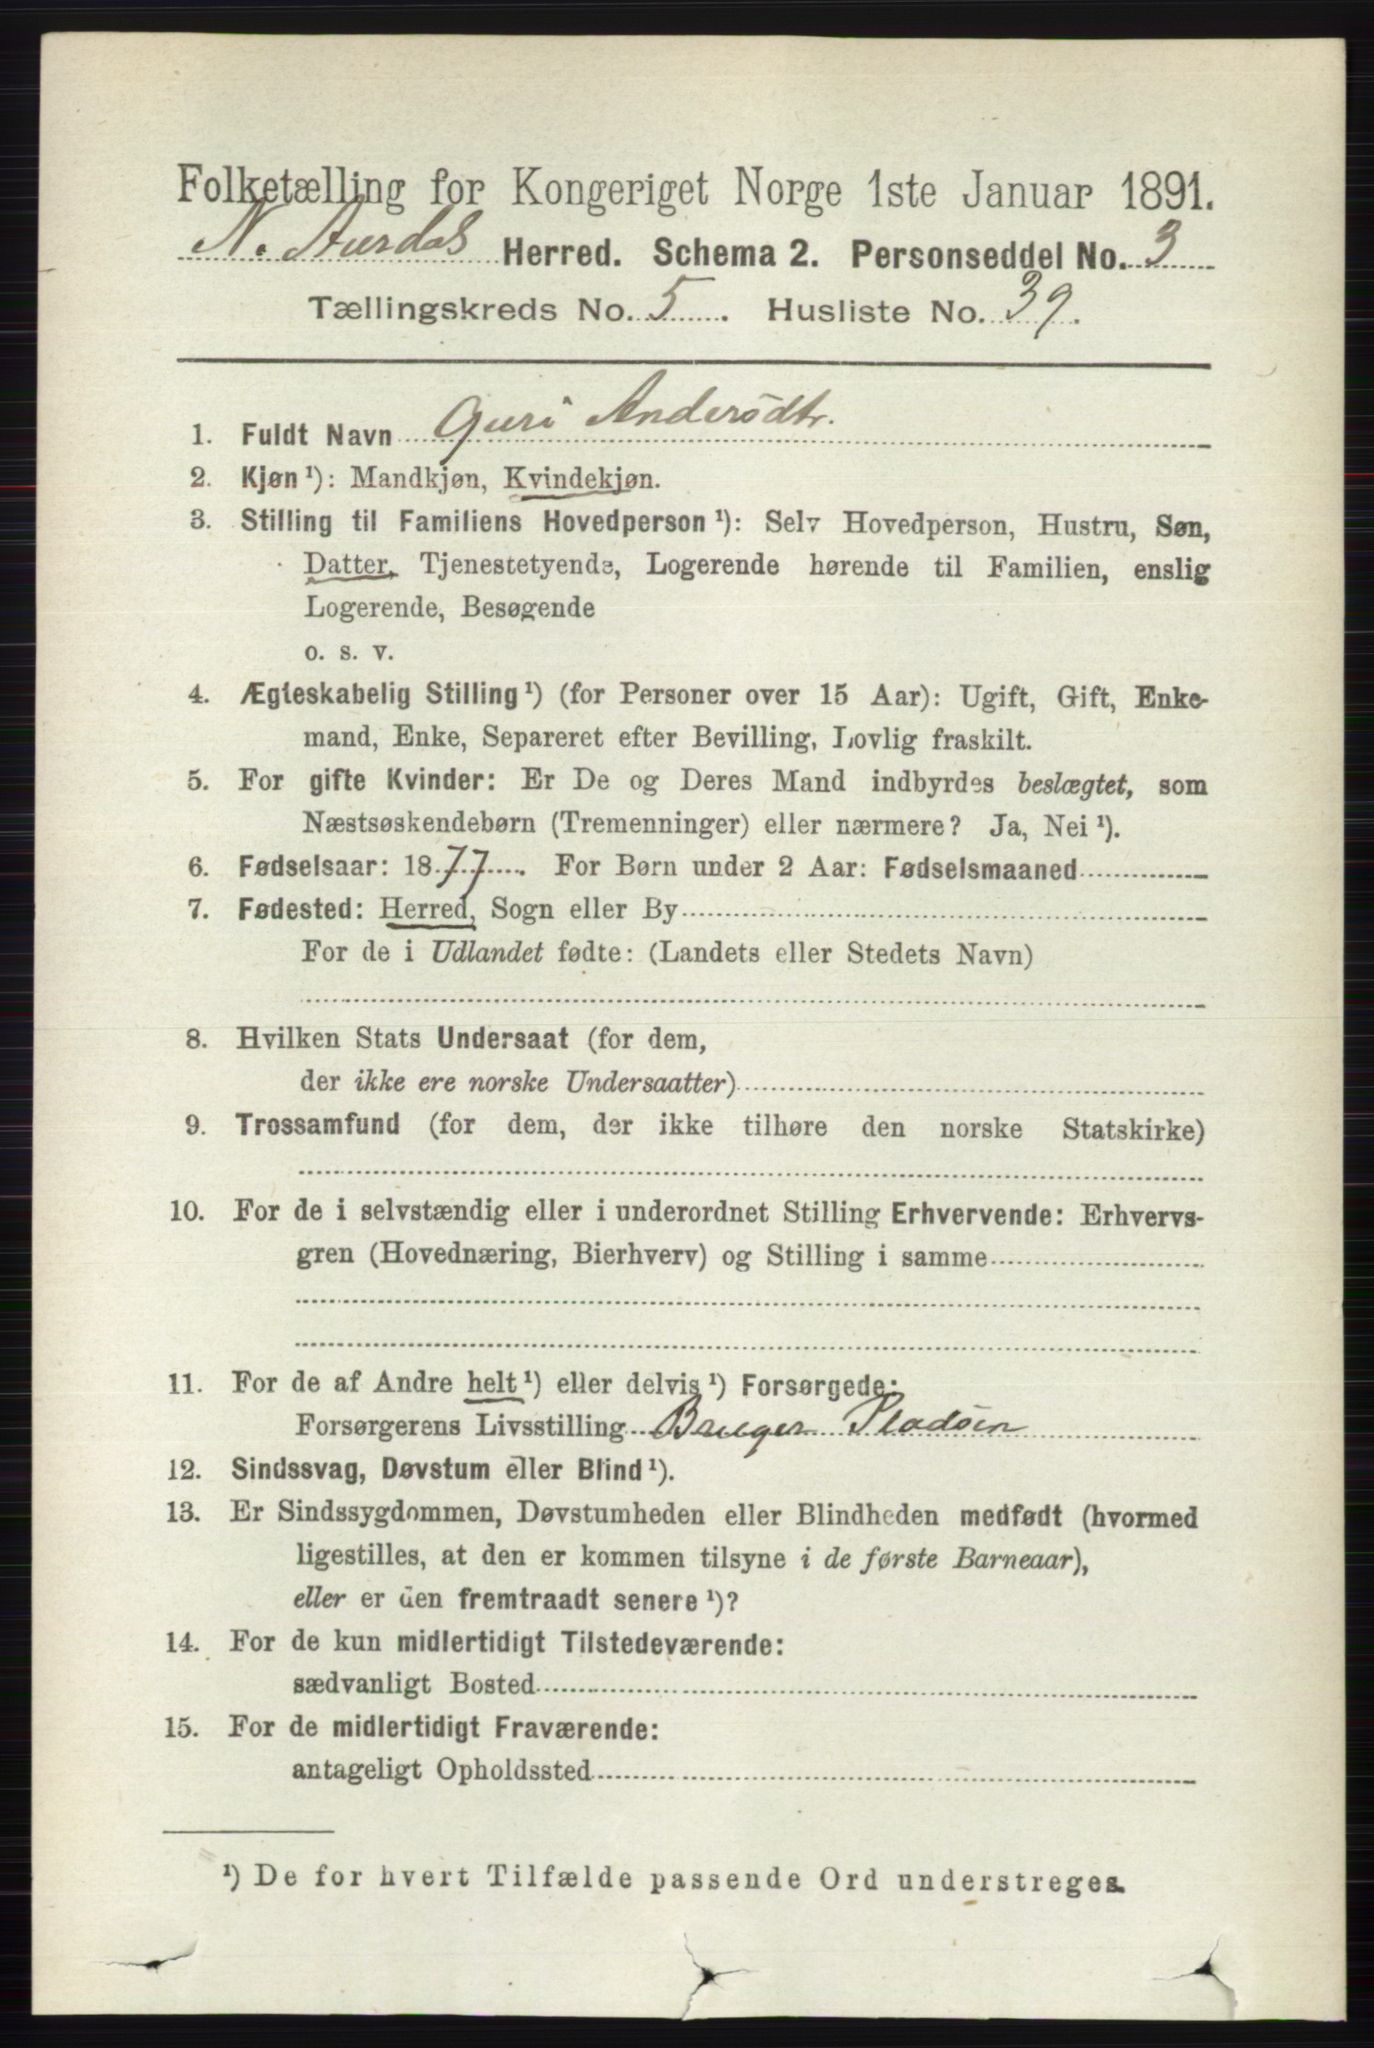 Folketælling for Kongeriget Norge 1ste Januar 1891.
N. Aurdals Herred. Schema 2. Personseddel No. 3
Tællingskreds No. 5. Husliste No. 39.
1. Fuldt Navn Guri Andersdtr.
2. Kjøn ¹): Mandkjøn, Kvindekjøn.
3. Stilling til Familiens Hovedperson ¹): Selv Hovedperson, Hustru, Søn,
Datter, Tjenestetyende, Logerende hørende til Familien, enslig
Logerende, Besøgende
o. s. v.
4. Ægteskabelig Stilling ¹) (for Personer over 15 Aar): Ugift, Gift, Enke-
mand, Enke, Separeret efter Bevilling, Lovlig fraskilt.
5. For gifte Kvinder: Er De og Deres Mand indbyrdes beslægtet, som
Næstsøskendebørn (Tremenninger) eller nærmere? Ja, Nei ¹).
6. Fødselsaar: 1877. For Børn under 2 Aar: Fødselsmaaned
7. Fødested: Herred, Sogn eller By
For de i Udlandet fødte: (Landets eller Stedets Navn)
8. Hvilken Stats Undersaat (for dem,
der ikke ere norske Undersaatter)
9. Trossamfund (for dem, der ikke tilhøre den norske Statskirke)
10. For de i selvstændig eller i underordnet Stilling Erhvervende: Erhvervs-
gren (Hovednæring, Bierhverv) og Stilling i samme
11. For de af Andre helt ¹) eller delvis ¹) Forsørgede:
Forsørgerens Livsstilling Bruger Pladsen
12. Sindssvag, Døvstum eller Blind ¹).
13. Er Sindssygdommen, Døvstumheden eller Blindheden medfødt (hvormed
ligestilles, at den er kommen tilsyne i de første Barneaar),
eller er den fremtraadt senere ¹)?
14. For de kun midlertidigt Tilstedeværende:
sædvanligt Bosted
15. For de midlertidigt Fraværende:
antageligt Opholdssted
¹) De for hvert Tilfælde passende Ord understreges.